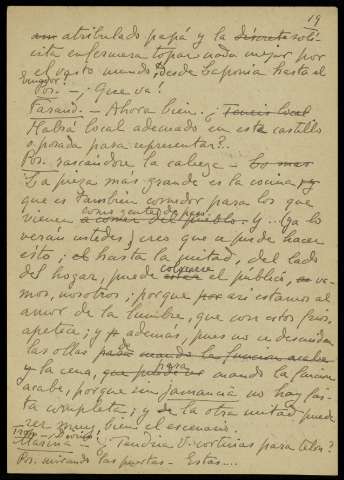 19
atribulado papá y la discreta soli-
cita enfermera topar nada mejor por
el vasto mundo, desde Laponia hasta el
Ecuador!
Pos. — ¡Que va!
Farand. — Ahora bien. ¿Teneis local
Habrá local adecuado en este castillo
o posada para representar?..
Pos. rascándose la cabeza — Lo mas
La pieza más grande es la cocina,
que es también comedor para los que
vienen a comer del pueblo. y.. (ya lo
como gente de paso
verán ustedes) creo que se puede hacer
esto; hasta la mitad, del lado
del hogar, puede estar el público, va-
colocarse
mos, nosotros; porque así estamos al
amor de la lumbre, que con estos fríos,
apetece; y además, pues no se descuidan
las ollas
y la cena, que puede para cuando la función
acabe, porque sin jamancia no hay fies-
ta completa; y de la otra mitad puede
ser muy bien el escenario.
¿Tendría V. cortinas para telon?
Pos. mirando las puertas — Estas....